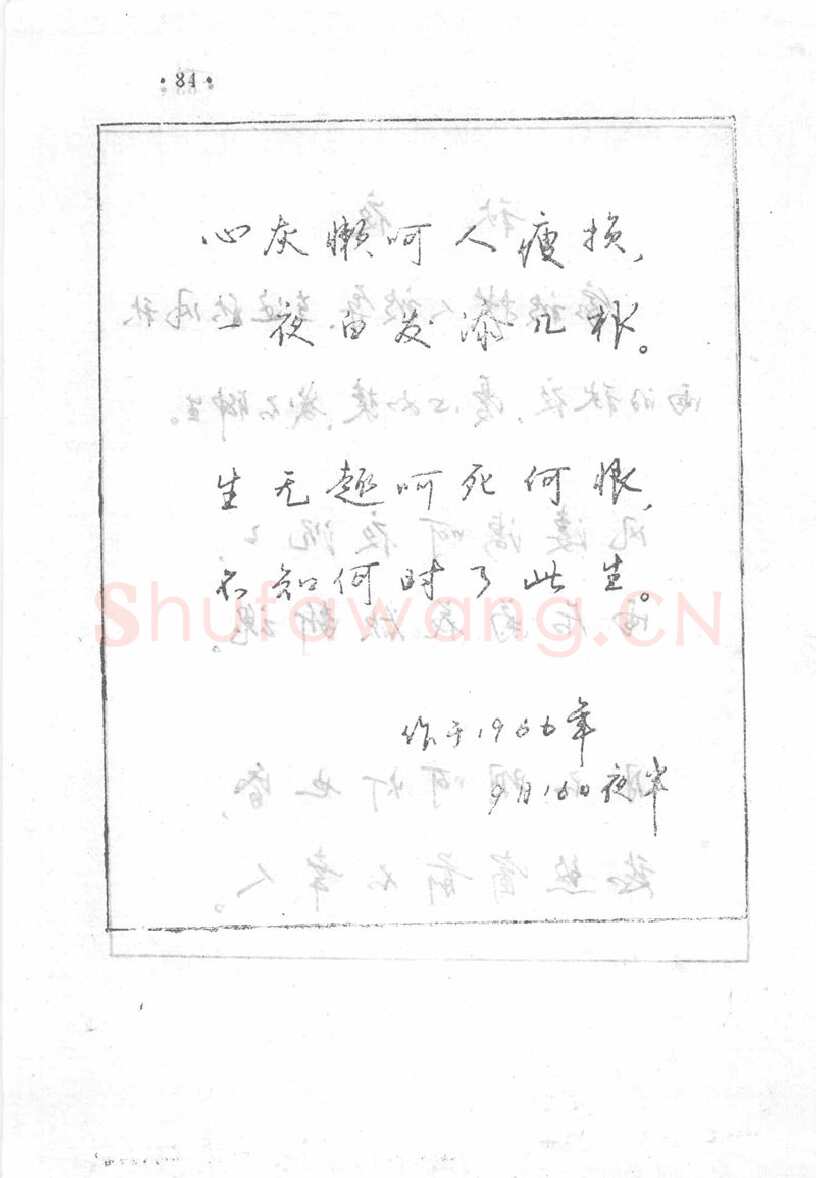 ·84·
心灰懒呵人瘦损,
一夜白发添几根。
生无趣呵死何恨,
不知何时了此生。
Shufawang.CN
作于1966年
9月16日夜半